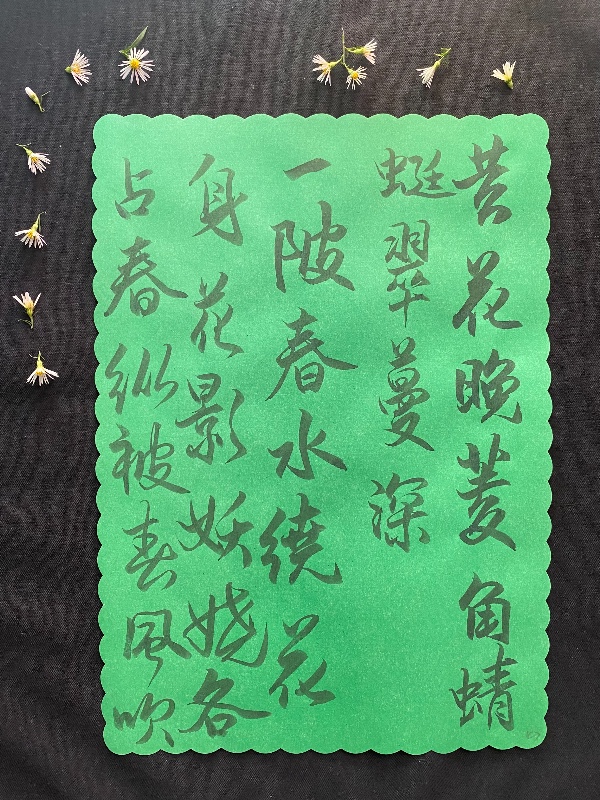 苔花晚菱角蜻
蜓翠蔓深
一陂春水繞花
身花影妖娆各
占春纵被春風吹